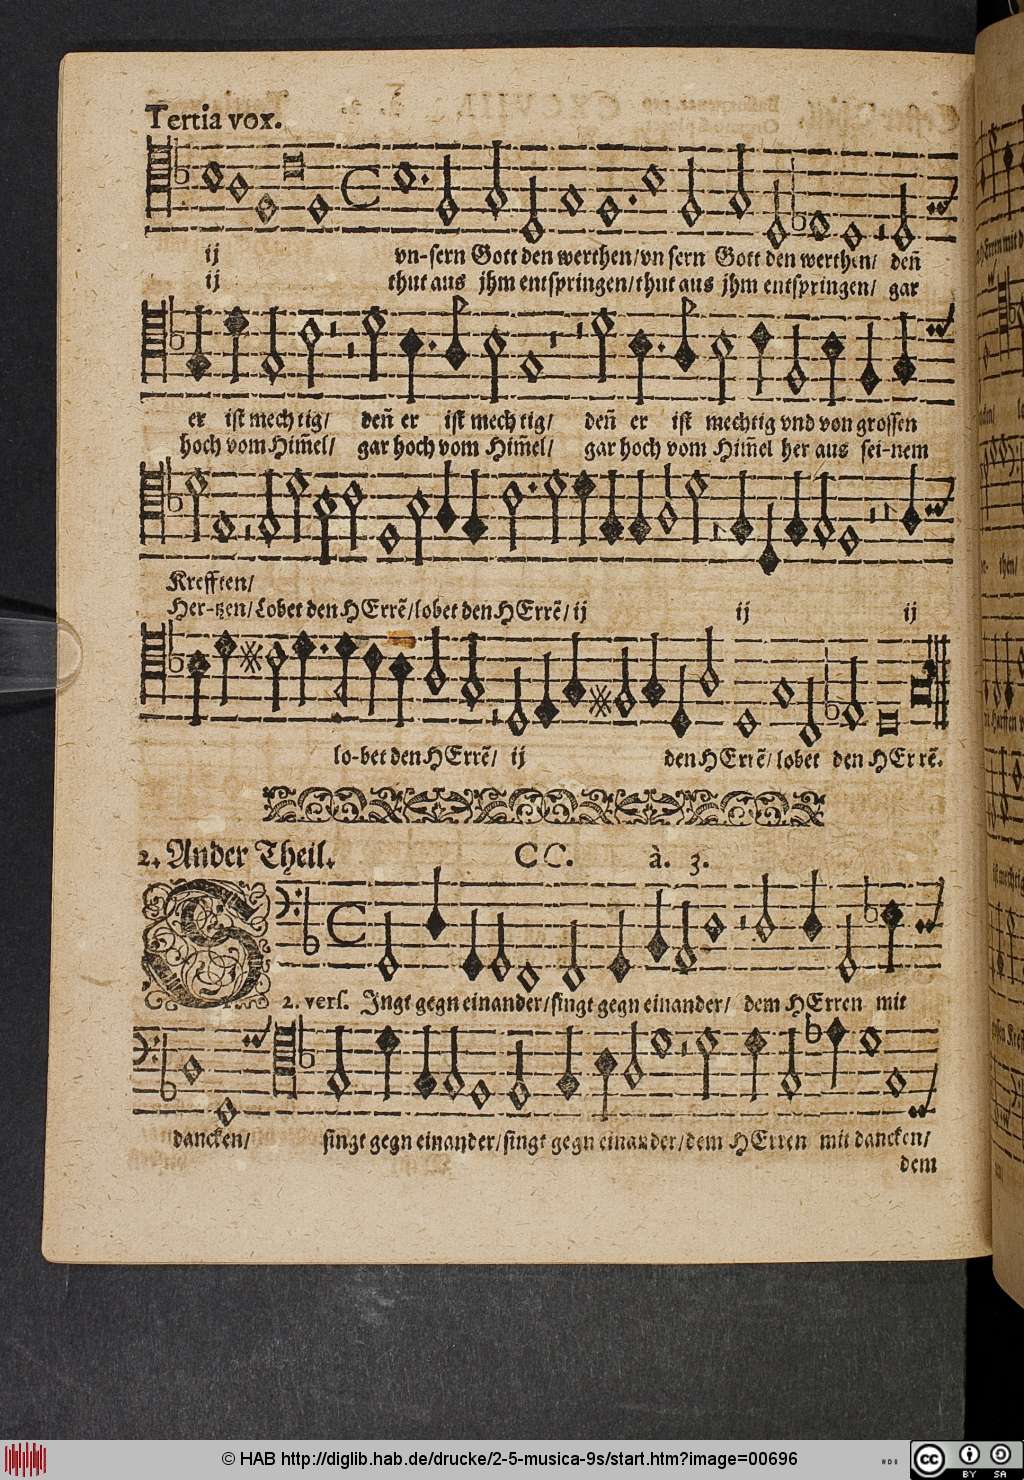 Tertia vox.
ij vn-sern Gott den werthen/vn sern Gott den werthen/ deñ
ij thut aus jhm entspringen/thut aus jhm entspringen/ gar
er ist mech tig/ deñ er ist mech tig/ deñ er ist mechtig vnd von grossen
hoch vom Him̃el/ gar hoch vom Him̃el/ gar hoch vom Him̃el her aus sei-nem
Krefften/
Her-tzen/Lobet den HErrẽ/lobet den HErrẽ/ ij ij ij
lo-bet den HErrẽ/ ij den HErrẽ/ lobet den HEr rẽ.
2. Ander Theil. CC. à. 3.
S
2. vers. Jngt gegn einander/singt gegn einander/ dem HErren mit
dancken/ singt gegn einander/singt gegn einander/dem HErren mit dancken/
dem
© HAB http://diglib.hab.de/drucke/2-5-musica-9s/start.htm?image=00696
cc BY SA